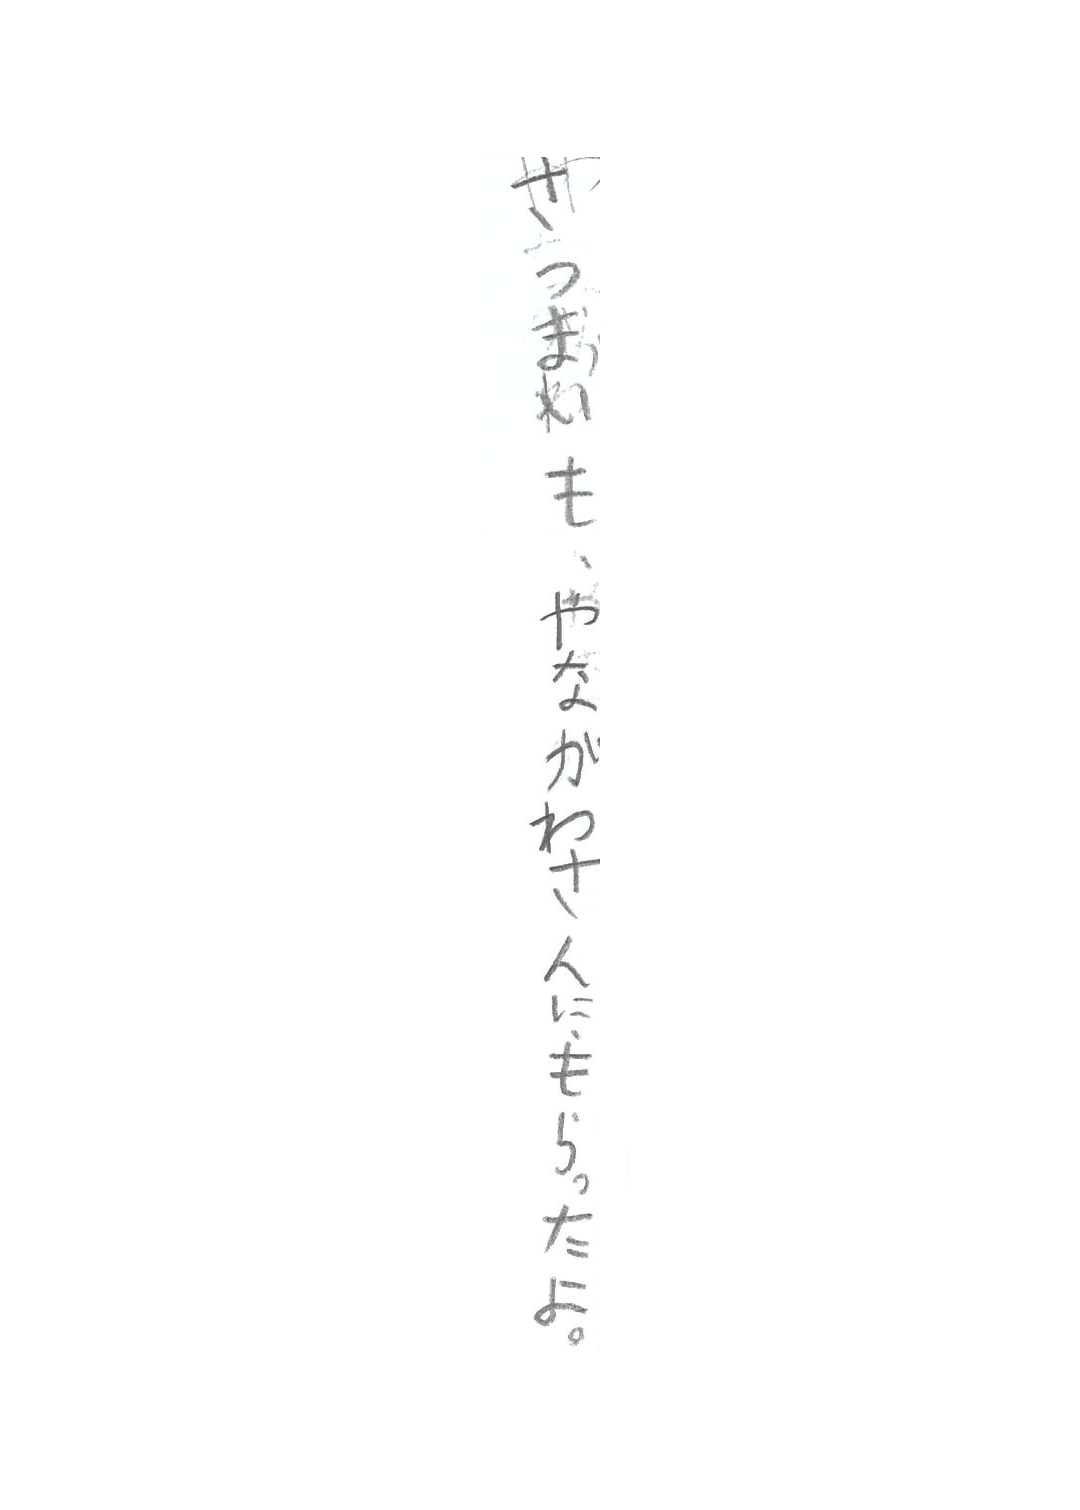 さつまいも、やながわさんに、もらったよ。